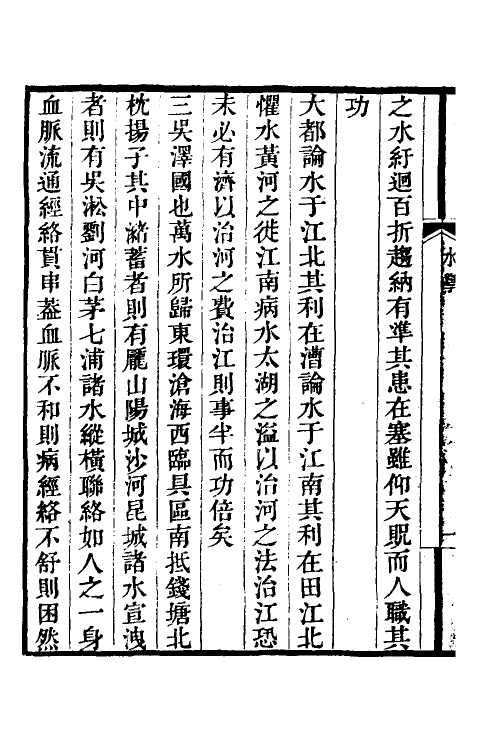 之水紆迴百折趨納有準其患在塞雖仰天貺而人職其
功
大都論水于江北其利在漕論水于江南其利在田江北
懼水黃河之徙江南病水太湖之溢以治河之法治江恐
未必有濟以治河之費治江則事半而功倍矣
三吳澤國也萬水所歸東環滄海西臨具區南抵錢塘北
枕揚子其中瀦蓄者則有龐山陽城沙河昆城諸水宣洩
者則有吳淞劉河白茅七浦諸水縱橫聯絡如人之一身
血脈流通經絡貫串葢血脈不和則病經絡不舒則困然